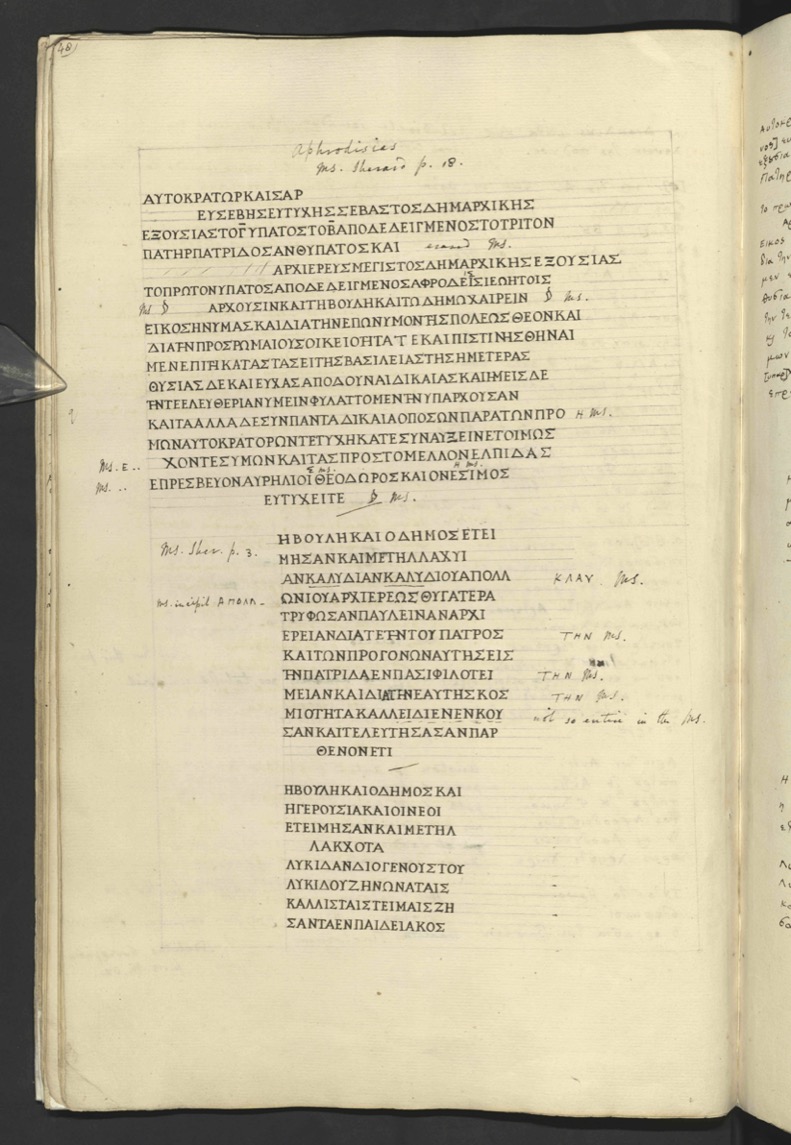 48
Aphrodisias
Ms. Sherard p. 18.
ΑΥΤΟΚΡΑΤΩΡΚΑΙΣΑΡ
ΕΥΣΕΒΗΣΕΥΤΥΧΗΣΣΕΒΑΣΤΟΣΔΗΜΑΡΧΙΚΗΣ
ΕΞΟΥΣΙΑΣΤΟΓΥΠΑΤΟΣΤΟΒΑΠΟΔΕΔΕΙΓΜΕΝΟΣΤΟΤΡΙΤΟΝ
ΠΑΤΗΡΠΑΤΡΙΔΟΣΑΝΘΥΠΑΤΟΣΚΑΙ erased Ms.
ΑΡΧΙΕΡΕΥΣΜΕΓΙΣΤΟΣΔΗΜΑΡΧΙΚΗΣΕΞΟΥΣΙΑΣ
ΤΟΠΡΩΤΟΝΥΠΑΤΟΣΑΠΟΔΕΔΕΙΓΜΕΝΟΣΑΦΡΟΔΕΙΣΙΕΩΗΤΟΙΣ
Ms D ΑΡΧΟΥΣΙΝΚΑΙΤΗΒΟΥΛΗΚΑΙΤΩΔΗΜΩΧΑΙΡΕΙΝ D Ms.
ΕΙΚΟΣΗΝΥΜΑΣΚΑΙΔΙΑΤΗΝΕΠΩΝΥΜΟΝΤΗΣΠΟΛΕΩΣΘΕΟΝΚΑΙ
ΔΙΑΤΗΝΠΡΟΣΡΩΜΑΙΟΥΣΟΙΚΕΙΟΤΗΤΑΤΕΚΑΙΠΙΣΤΙΝΗΣΘΗΝΑΙ
ΜΕΝΕΠΙΤΗΚΑΤΑΣΤΑΣΕΙΤΗΣΒΑΣΙΛΕΙΑΣΤΗΣΗΜΕΤΕΡΑΣ
ΘΥΣΙΑΣΔΕΚΑΙΕΥΧΑΣΑΠΟΔΟΥΝΑΙΔΙΚΑΙΑΣΚΑΙΗΜΕΙΣΔΕ
ΤΗΝΤΕΕΛΕΥΘΕΡΙΑΝΥΜΕΙΝΦΥΛΑΤΤΟΜΕΝΤΗΝΥΠΑΡΧΟΥΣΑΝ
ΚΑΙΤΑΑΛΛΑΔΕΣΥΝΠΑΝΤΑΔΙΚΑΙΑΟΠΟΣΩΝΠΑΡΑΤΩΝΠΡΟ Η Ms.
ΜΩΝΑΥΤΟΚΡΑΤΟΡΩΝΤΕΤΥΧΗΚΑΤΕΣΥΝΑΥΞΕΙΝΕΤΟΙΜΩΣ
Ms. Ε.. ΧΟΝΤΕΣΥΜΩΝΚΑΙΤΑΣΠΡΟΣΤΟΜΕΛΛΟΝΕΛΠΙΔΑΣ
Ms. .. ΕΠΡΕΣΒΕΥΟΝΑΥΡΗΛΙΟΙΘΕΟΔΩΡΟΣΚΑΙΟΝΕΣΙΜΟΣ
ΕΥΤΥΧΕΙΤΕ D Ms.
ΗΒΟΥΛΗΚΑΙΟΔΗΜΟΣΕΤΕΙ
Ms. Sher. p. 3. ΜΗΣΑΝΚΑΙΜΕΤΗΛΛΑΧΥΙ
ΑΝΚΑΛΥΔΙΑΝΚΑΛΥΔΙΟΥΑΠΟΛΛ ΚΛΑΥ Ms.
Ms. incipit ΑΠΟΛΛ. ΩΝΙΟΥΑΡΧΙΕΡΕΩΣΘΥΓΑΤΕΡΑ
ΤΡΥΦΩΣΑΝΠΑΥΛΕΙΝΑΝΑΡΧΙ
ΕΡΕΙΑΝΔΙΑΤΕΤΗΝΤΟΥΠΑΤΡΟΣ ΤΗΝ Ms.
ΚΑΙΤΩΝΠΡΟΓΟΝΩΝΑΥΤΗΣΕΙΣ
ΤΗΝΠΑΤΡΙΔΑΕΝΠΑΣΙΦΙΛΟΤΕΙ ΤΗΝ Ms.
ΜΕΙΑΝΚΑΙΔΙΑΤΗΝΕΑΥΤΗΣΚΟΣ ΤΗΝ Ms.
ΜΙΟΤΗΤΑΚΑΛΛΕΙΔΙΕΝΕΝΚΟΥ not so entire in the Ms.
ΣΑΝΚΑΙΤΕΛΕΥΤΗΣΑΣΑΝΠΑΡ
ΘΕΝΟΝΕΤΙ
ΗΒΟΥΛΗΚΑΙΟΔΗΜΟΣΚΑΙ
ΗΓΕΡΟΥΣΙΑΚΑΙΟΙΝΕΟΙ
ΕΤΕΙΜΗΣΑΝΚΑΙΜΕΤΗΛ
ΛΑΚΧΟΤΑ
ΛΥΚΙΔΑΝΔΙΟΓΕΝΟΥΣΤΟΥ
ΛΥΚΙΔΟΥΖΗΝΩΝΑΤΑΙΣ
ΚΑΛΛΙΣΤΑΙΣΤΕΙΜΑΙΣΖΗ
ΣΑΝΤΑΕΝΠΑΙΔΕΙΑΚΟΣ